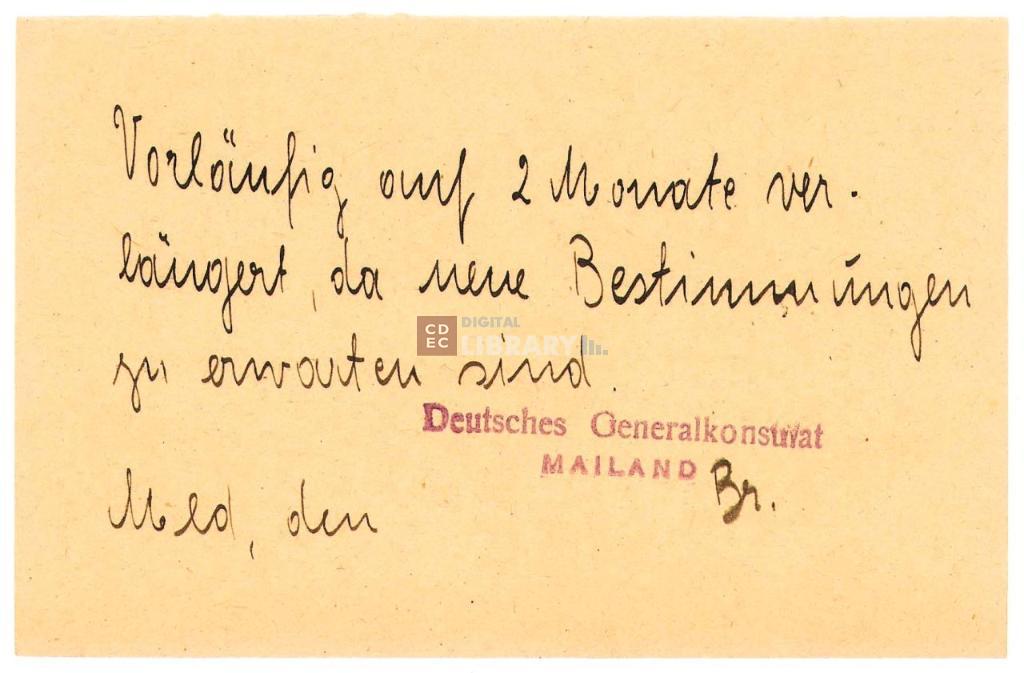 Vorläufig auf 2 Monate ver-
längert, da neue Bestimmungen
CD EC DIGITAL LIBRARY
zu erwarten sind.
Deutsches Generalkonsulat
MAILAND Br.
Mld, den